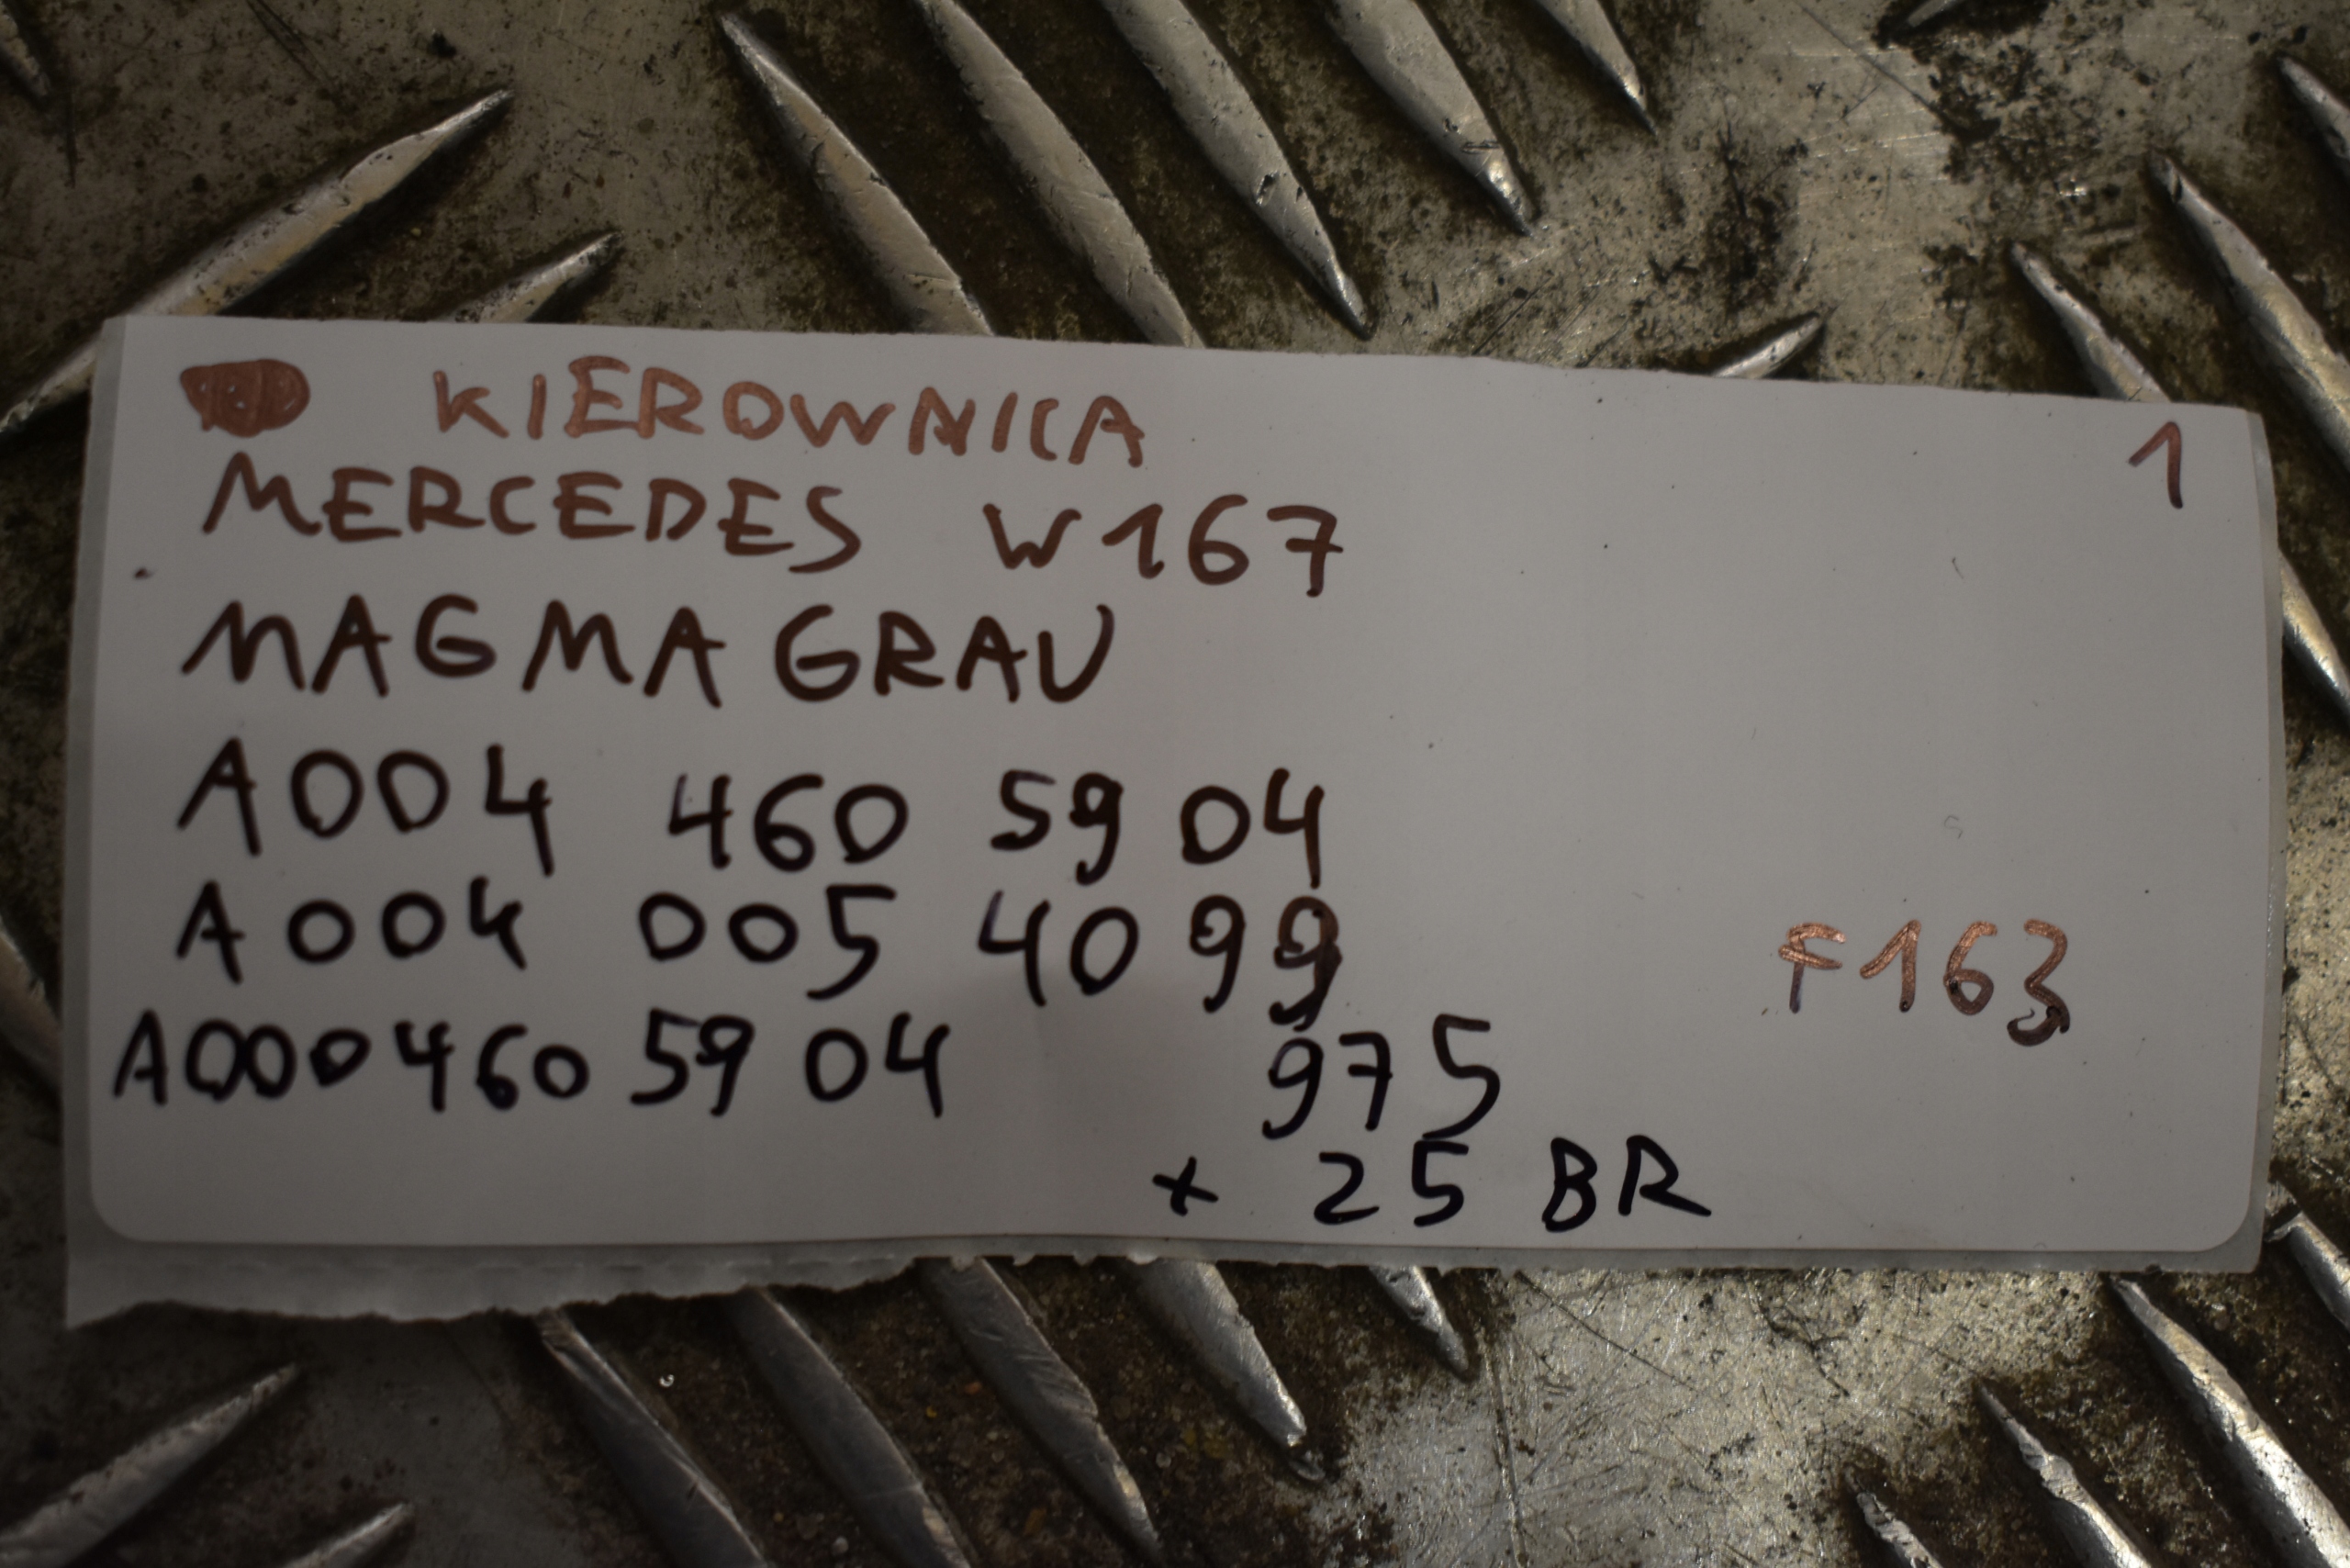 KIEROWNICA 1
MERCEDES W167
MAGMA GRAU
A004 460 59 04
A004 005 40 99 F163
A000 460 59 04 975
+ 25 BR